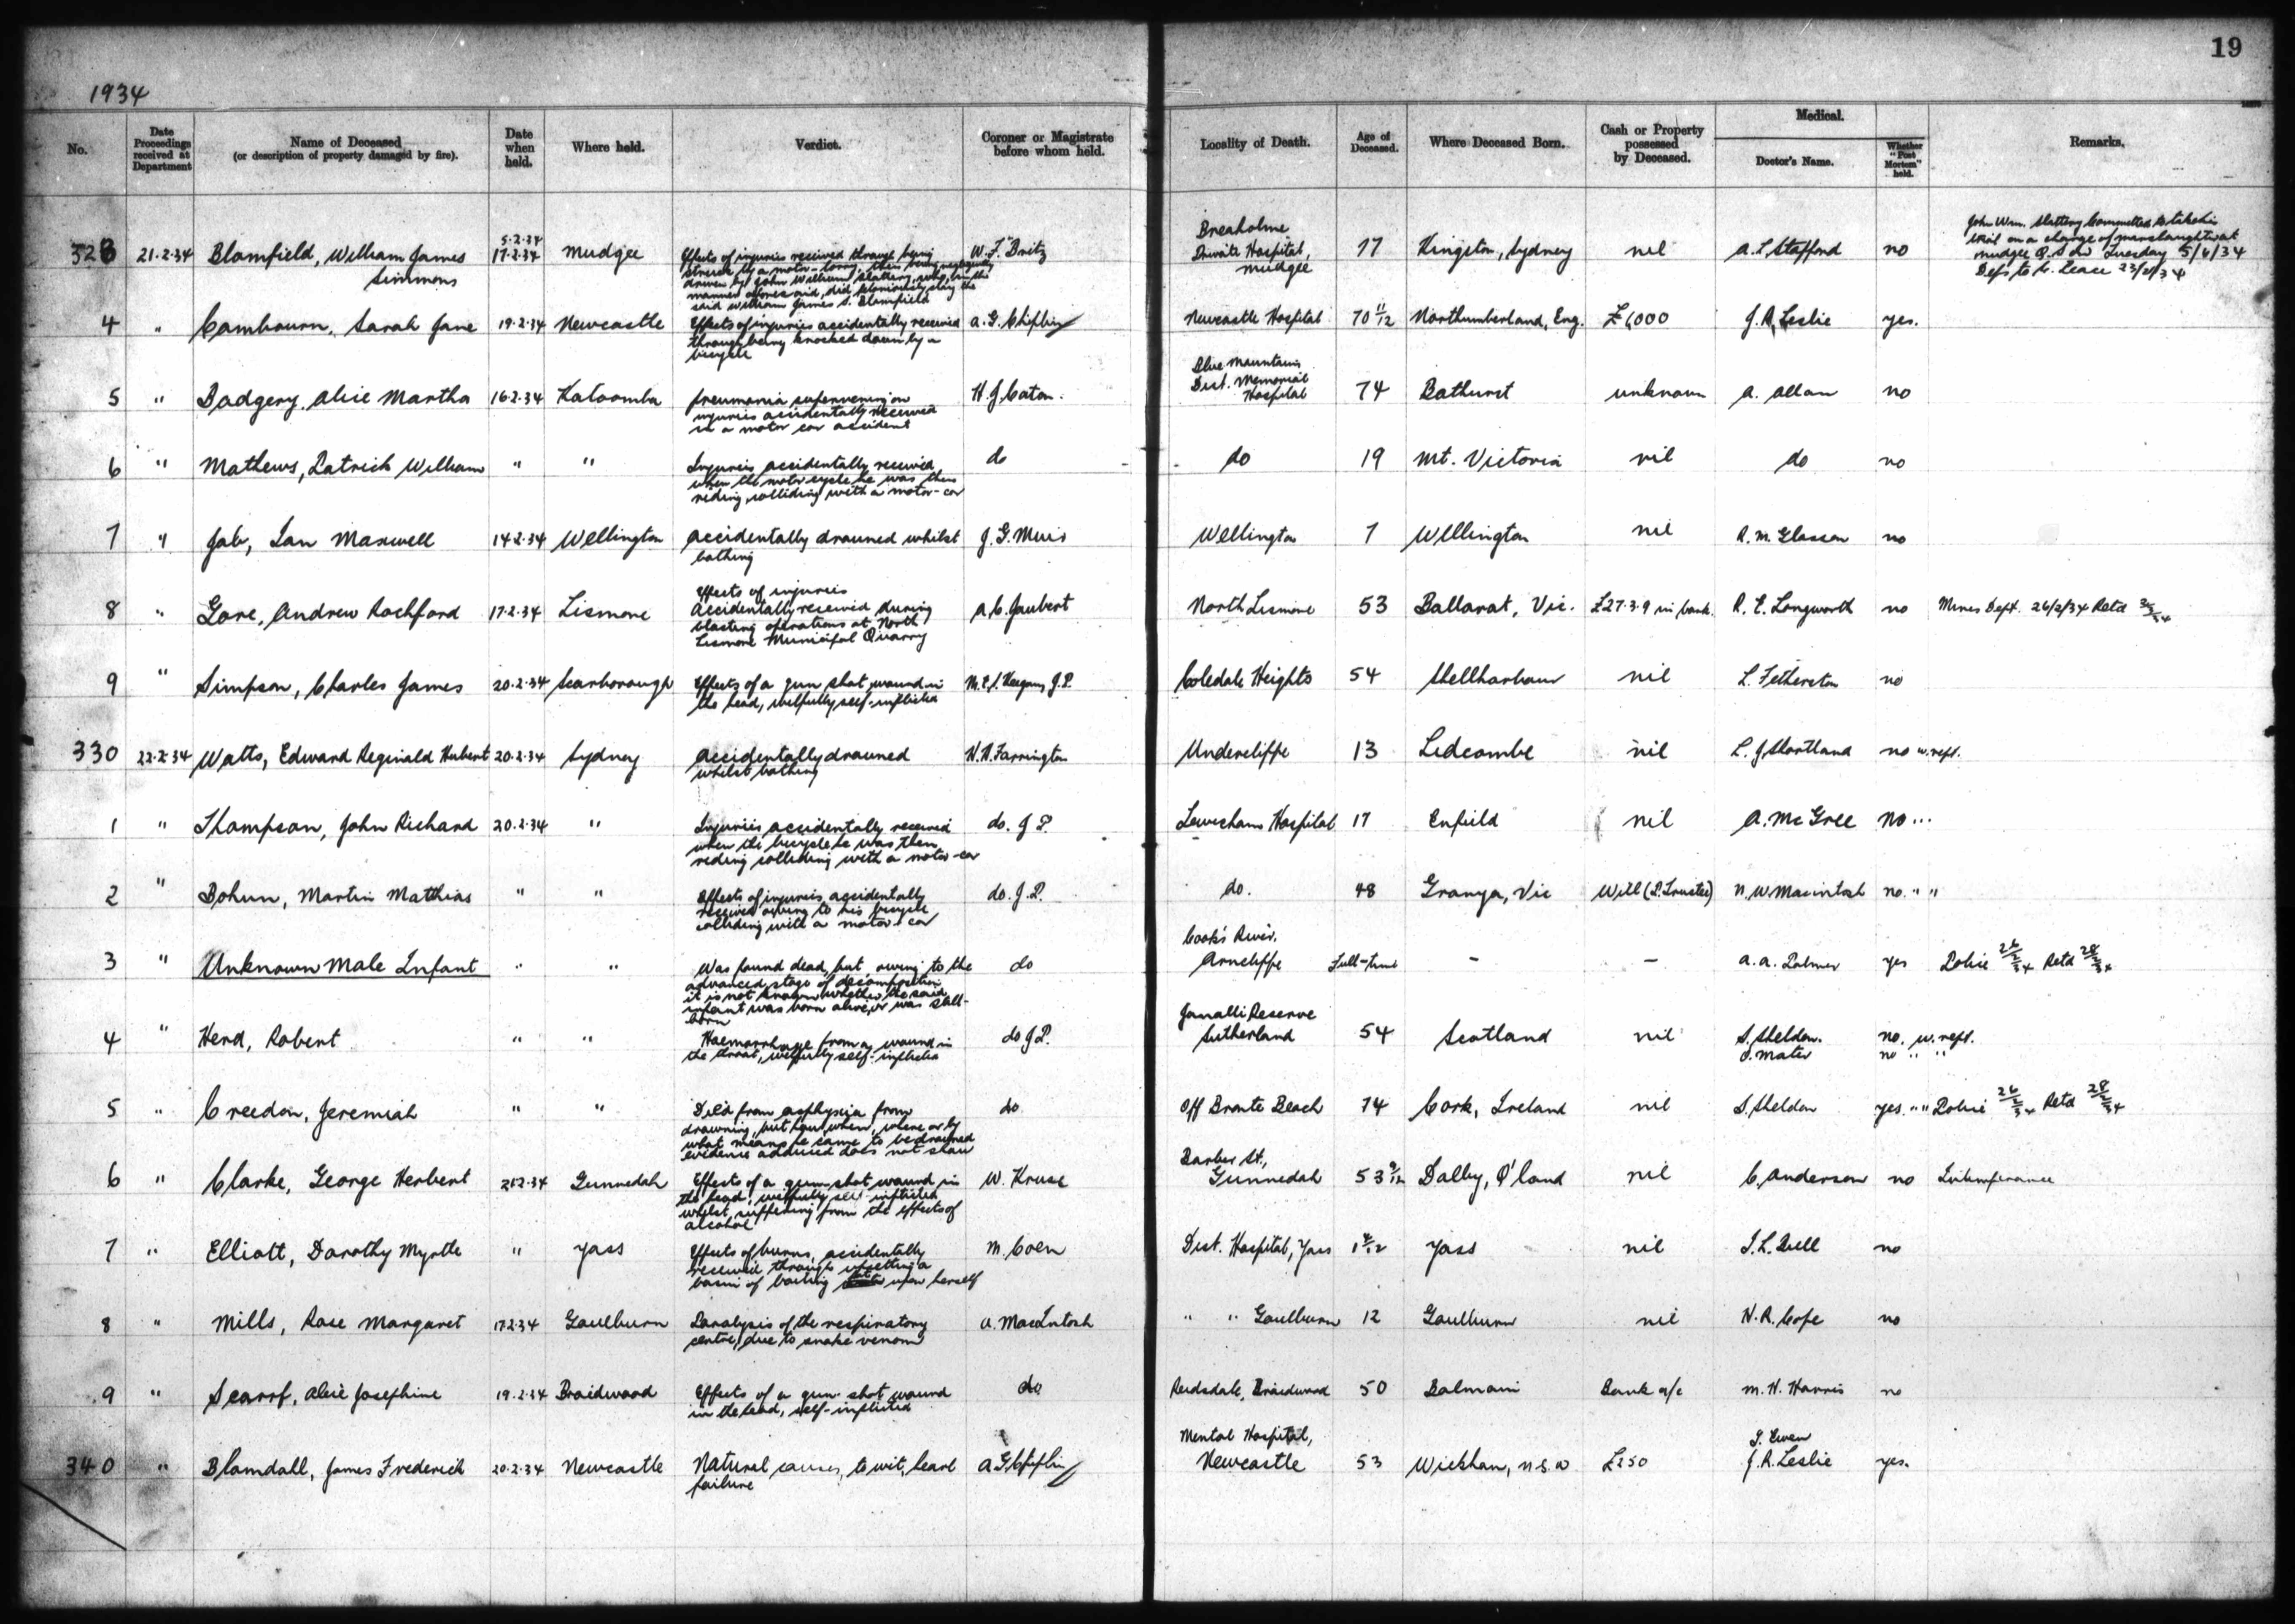 19
1934
No.
Date Proceedings received at Department
Name of Deceased (or description of property damaged by fire).
Date when held.
Where held.
Verdict.
Coroner or Magistrate before whom held.
Locality of Death.
Age of Deceased.
Where Deceased Born.
Cash or Property possessed by Deceased.
Medical.
Doctor's Name.
Whether "Post Mortem" held.
Remarks.
323 21.2.34 Blomfield, William James Simmons
5.2.34
17.2.34 Mudgee
Effects of injuries received through being
struck by a motor-lorry, then being negligently
driven by John William Slattery, who, in the
manner aforesaid, did feloniously slay the
said William James S. Blomfield
W. F. Britz
Braeholme
Private Hospital,
Mudgee
77 Kingston, Sydney nil A. L. Stafford no
John Wm. Slattery Committed to take his
trial on a charge of manslaughter at
Mudgee Q.S. on Tuesday 5/6/34
Deps to C. Peace 23/2/34
4 " Cambourn, Sarah Jane 19.2.34 Newcastle
Effects of injuries accidentally received
through being knocked down by a
bicycle
A. G. Chiplin
Newcastle Hospital 70 11/12 Northumberland, Eng. £1,000 J. R. Leslie yes.
5 " Badgery, Alice Martha 16.2.34 Katoomba
pneumonia supervening on
injuries accidentally received
in a motor car accident
H. J. Caton.
Blue Mountains
Dist. Memorial
Hospital
74 Bathurst unknown A. Allan no
6 " Mathews, Patrick William " "
Injuries accidentally received
when the motor cycle he was then
riding, colliding with a motor-car
do
do 19 Mt. Victoria nil do no
7 " Job, Ian Maxwell 14.2.34 Wellington
Accidentally drowned whilst
bathing
J. G. Muir
Wellington 7 Wellington nil R. M. Glasson no
8 " Gore, Andrew Rochford 17.2.34 Lismore
Effects of injuries
accidentally received during
blasting operations at North
Lismore Municipal Quarry
A. C. Jaubert
North Lismore 53 Ballarat, Vic. £27.3.9 in bank. R. E. Longworth no Mines Dept. 26/2/34 Retd
9 " Simpson, Charles James 20.2.34 Scarborough
Effects of a gun shot wound in
the head, wilfully self-inflicted
Keegan, J.P.
Coledale Heights 54 Shellharbour nil L. Fetherston no
330 22.2.34 Watts, Edward Reginald Hubert 20.2.34 Sydney
Accidentally drowned
whilst bathing
H. H. Farrington
Undercliffe 13 Lidcombe nil L. J. Shortland no w. rept.
1 " Thompson, John Richard 20.2.34 "
Injuries accidentally received
when the bicycle he was then
riding colliding with a motor-car
do. J.P.
Lewisham Hospital 17 Enfield nil A. McGree no " "
2 " Bohun, Martin Matthias " "
Effects of injuries accidentally
received owing to his bicycle
colliding with a motor-car
do. J.P.
do. 48 Granya, Vic Will (P. Trustee) N. W. Macintosh no. " "
3 " Unknown Male Infant " "
Was found dead, but, owing to the
advanced stage of decomposition
it is not known whether the said
infant was born alive, or was still-
born
do
Cook's River,
Arncliffe Full-time - - A. A. Palmer yes Police 26/2/34 Retd 28/2/34
4 " Herd, Robert " "
Haemorrhage from a wound in
the throat, wilfully self-inflicted
do J.P.
Jannali Reserve
Sutherland 54 Scotland nil S. Sheldon. no. w. rept.
S. Mater no " "
5 " Creedon, Jeremiah " "
Died from asphyxia from
drowning, but how, when, where or by
what means he came to be drowned
evidence adduced does not show
do
Off Bronte Beach 74 Cork, Ireland nil S. Sheldon yes. " " Police 26/2/34 Retd 28/2/34
6 " Clarke, George Herbert 21.2.34 Gunnedah
Effects of a gun-shot wound in
the head, wilfully self-inflicted
whilst suffering from the effects of
alcohol
W. Kruse
Barber St.,
Gunnedah 53 9/12 Dalby, Q'land nil C. Anderson no Intemperance
7 " Elliott, Dorothy Myrtle " Yass
Effects of burns, accidentally
received through upsetting a
basin of boiling upon herself
M. Coen
Dist. Hospital, Yass Yass nil no
8 " Mills, Rose Margaret 17.2.34 Goulburn
Paralysis of the respiratory
centre, due to snake venom
A. MacIntosh
" " Goulburn 12 Goulburn nil H. R. Cope no
9 " Scarff, Alice Josephine 19.2.34 Braidwood
Effects of a gun-shot wound
in the head, self-inflicted
do
Reidsdale, Braidwood 50 Balmain Bank a/c M. H. Harris no
340 " Blomdall, James Frederick 20.2.34 Newcastle
Natural causes, to wit, heart
failure
A. G. Chiplin
Mental Hospital,
Newcastle 53 Wickham, N.S.W £250
T. Ewen
J. R. Leslie yes.